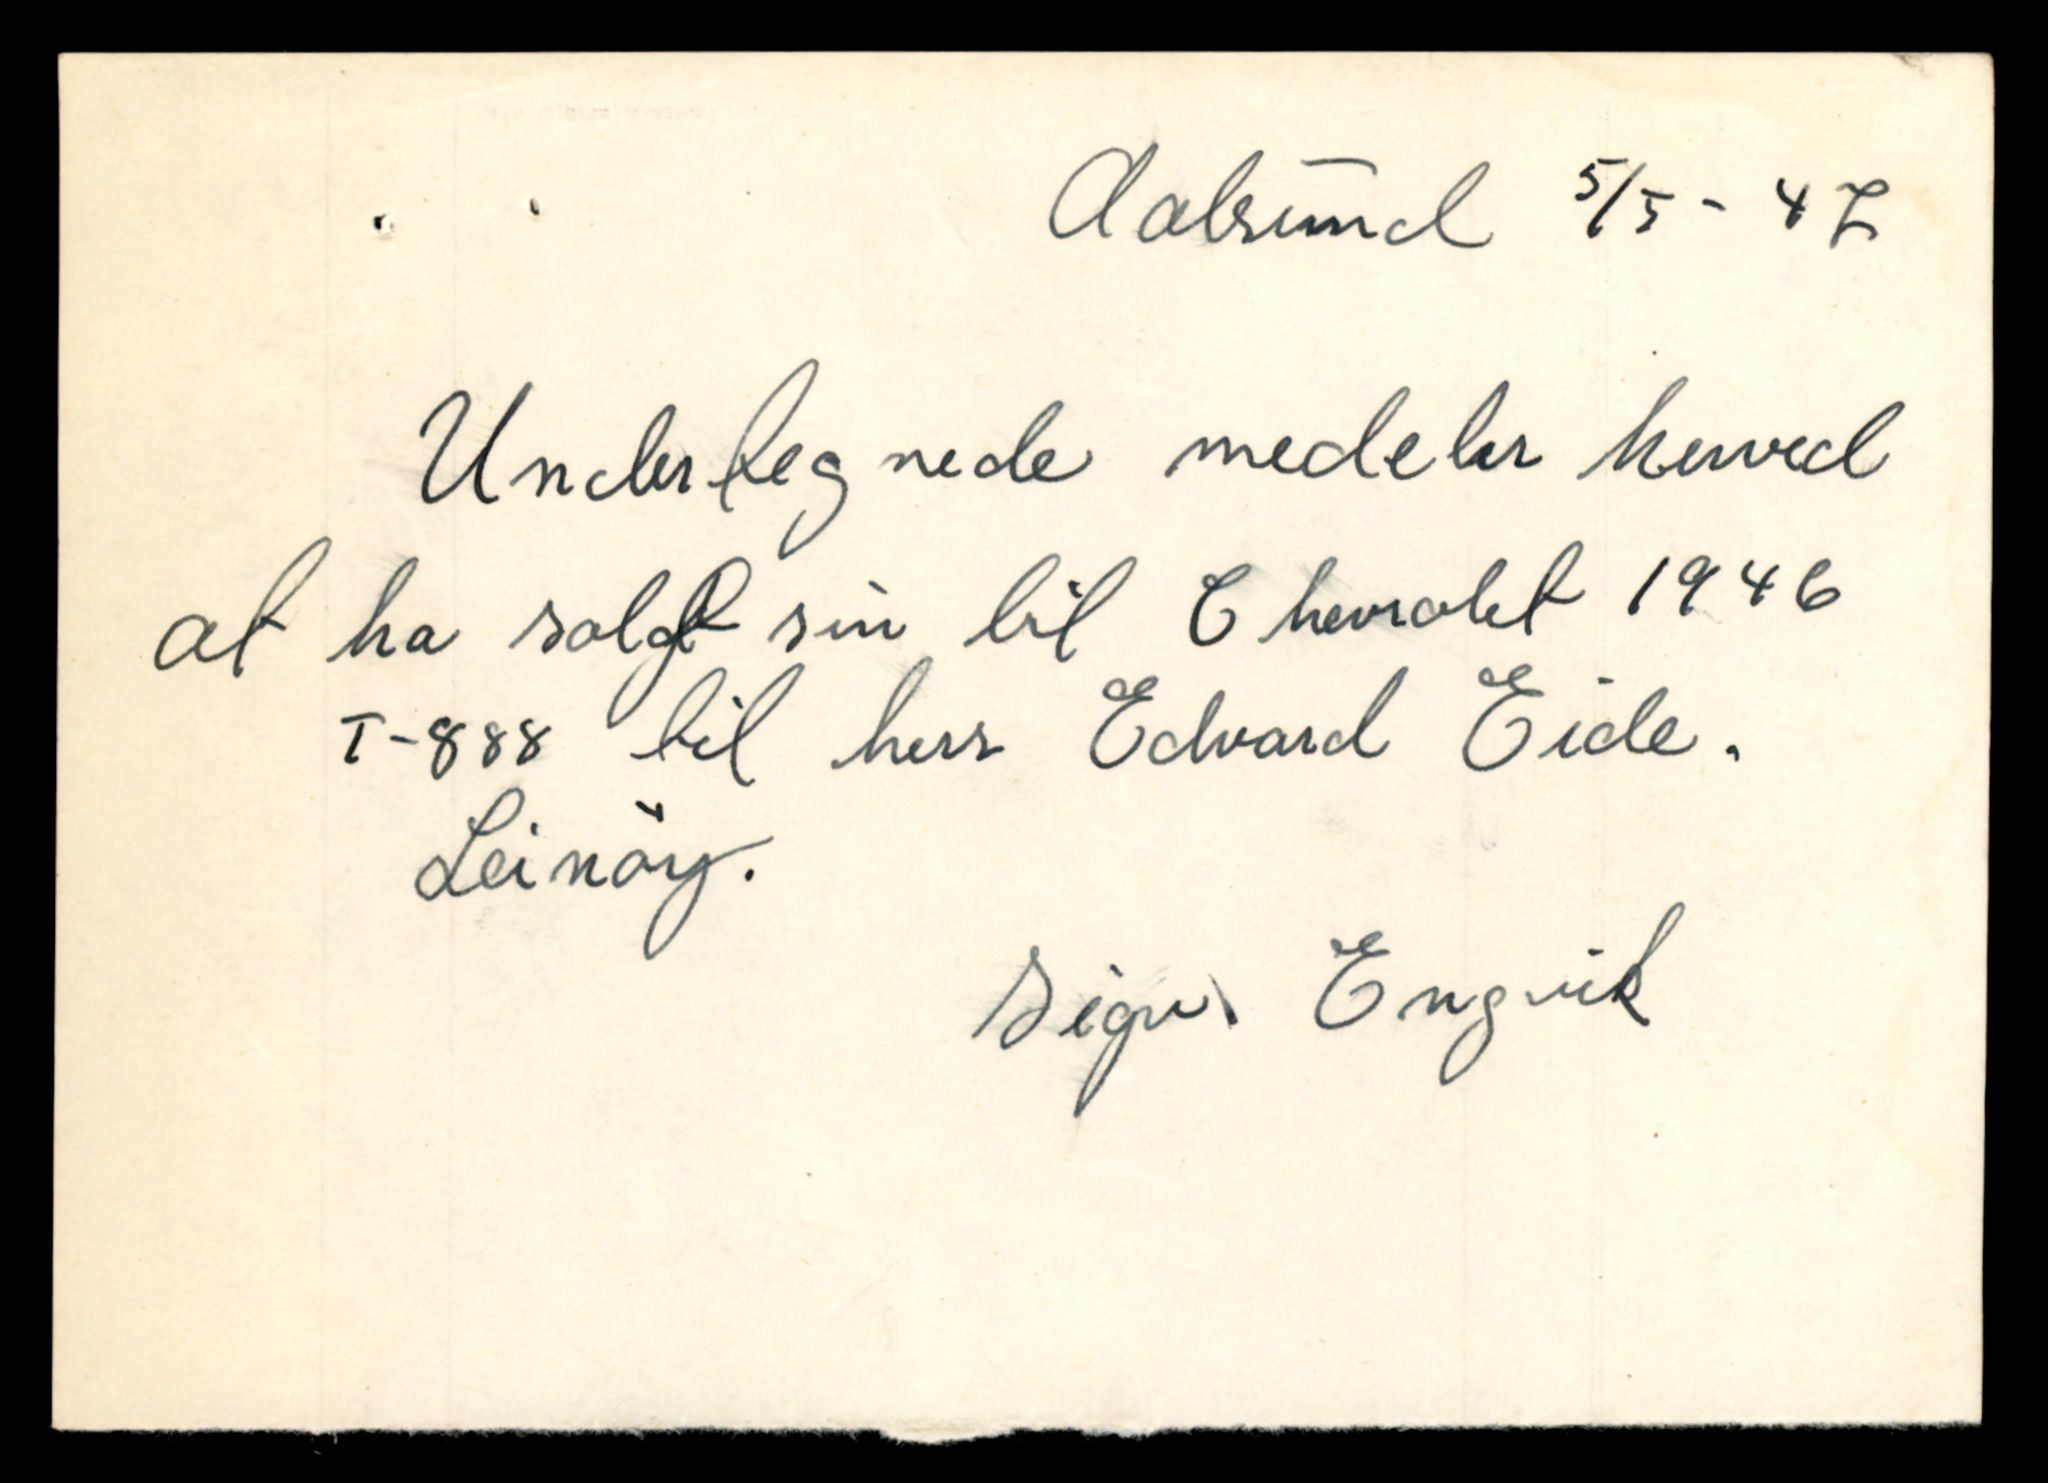 Aalsund 5/5 - 47
Undertegnede medeler herved
at ha solgt sin bil Chevrolet 1946
T-888 til herr Edvard Eide.
Leinöy.
Sigv. Engvik